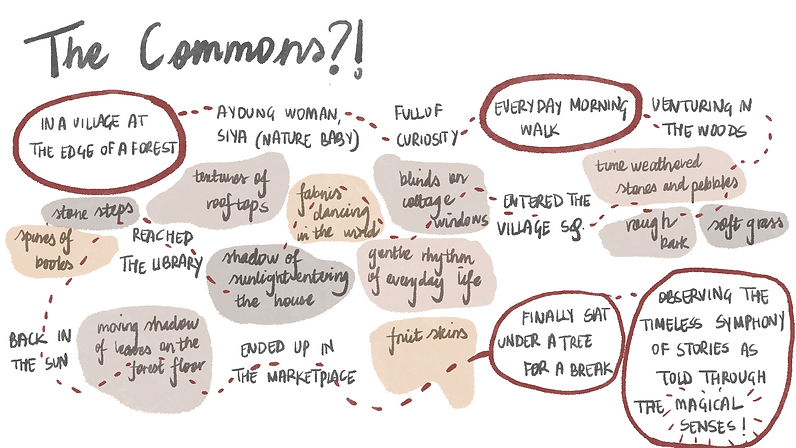 The Commons?!
IN A VILLAGE AT
THE EDGE OF A FOREST
A YOUNG WOMAN,
SIYA (NATURE BABY)
FULL OF
CURIOSITY
EVERYDAY MORNING
WALK
VENTURING IN
THE WOODS
time weathered
stones and pebbles
rough
bark
soft grass
ENTERED THE
VILLAGE SQ.
blinds on
cottage
windows
fabric
dancing
in the world
textures of
rooftops
gentle rhythm
of everyday life
shadow of
sunlight entering
the house
stone steps
REACHED
THE LIBRARY
spines of
books
BACK IN
THE SUN
moving shadow
of leaves on the
forest floor
ENDED UP IN
THE MARKETPLACE
fruit skins
FINALLY SAT
UNDER A TREE
FOR A BREAK
OBSERVING THE
TIMELESS SYMPHONY
OF STORIES AS
TOLD THROUGH
THE MAGICAL
SENSES!